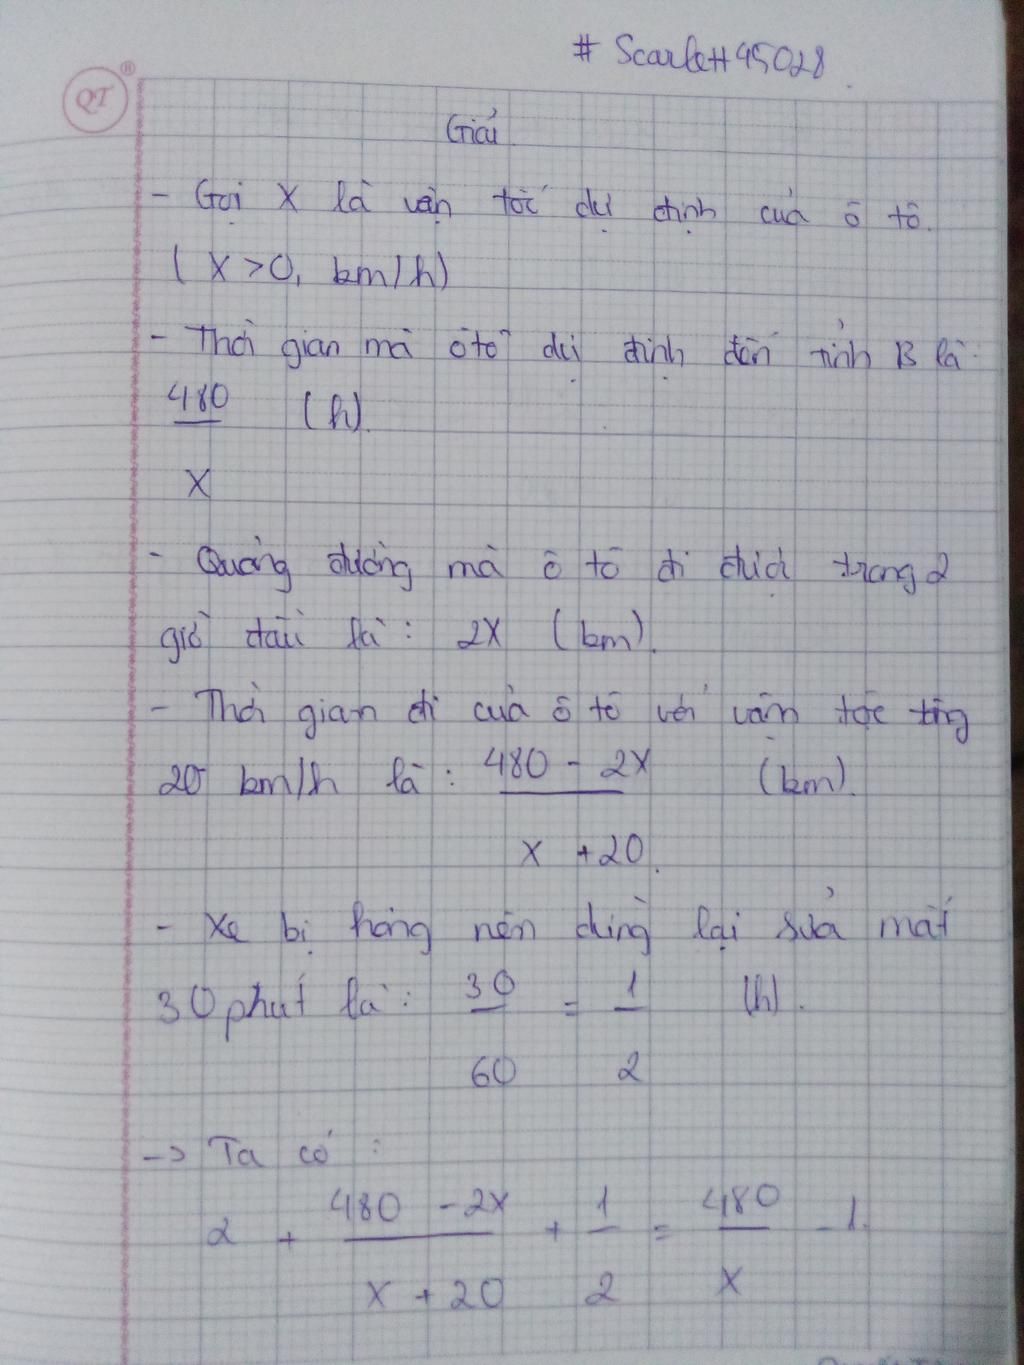 # Scarlett45028
QT ®
Giải
- Gọi X là vận tốc dự định của ô tô.
( X > 0, km/h)
- Thời gian mà ôtô dự định đến tỉnh B là
480 (h).
X
- Quãng đường mà ô tô đi được trong 2
giờ đầu là: 2X (km).
- Thời gian đi của ô tô với vận tốc tăng
20 km/h là: 480 - 2X (km).
x + 20.
- Xe bị hỏng nên dừng lại sửa mất
30 phút là: 30 = 1 (h).
60 2
-> Ta có:
2 + 480 - 2X + 1 = 480 - 1.
X + 20 2 X